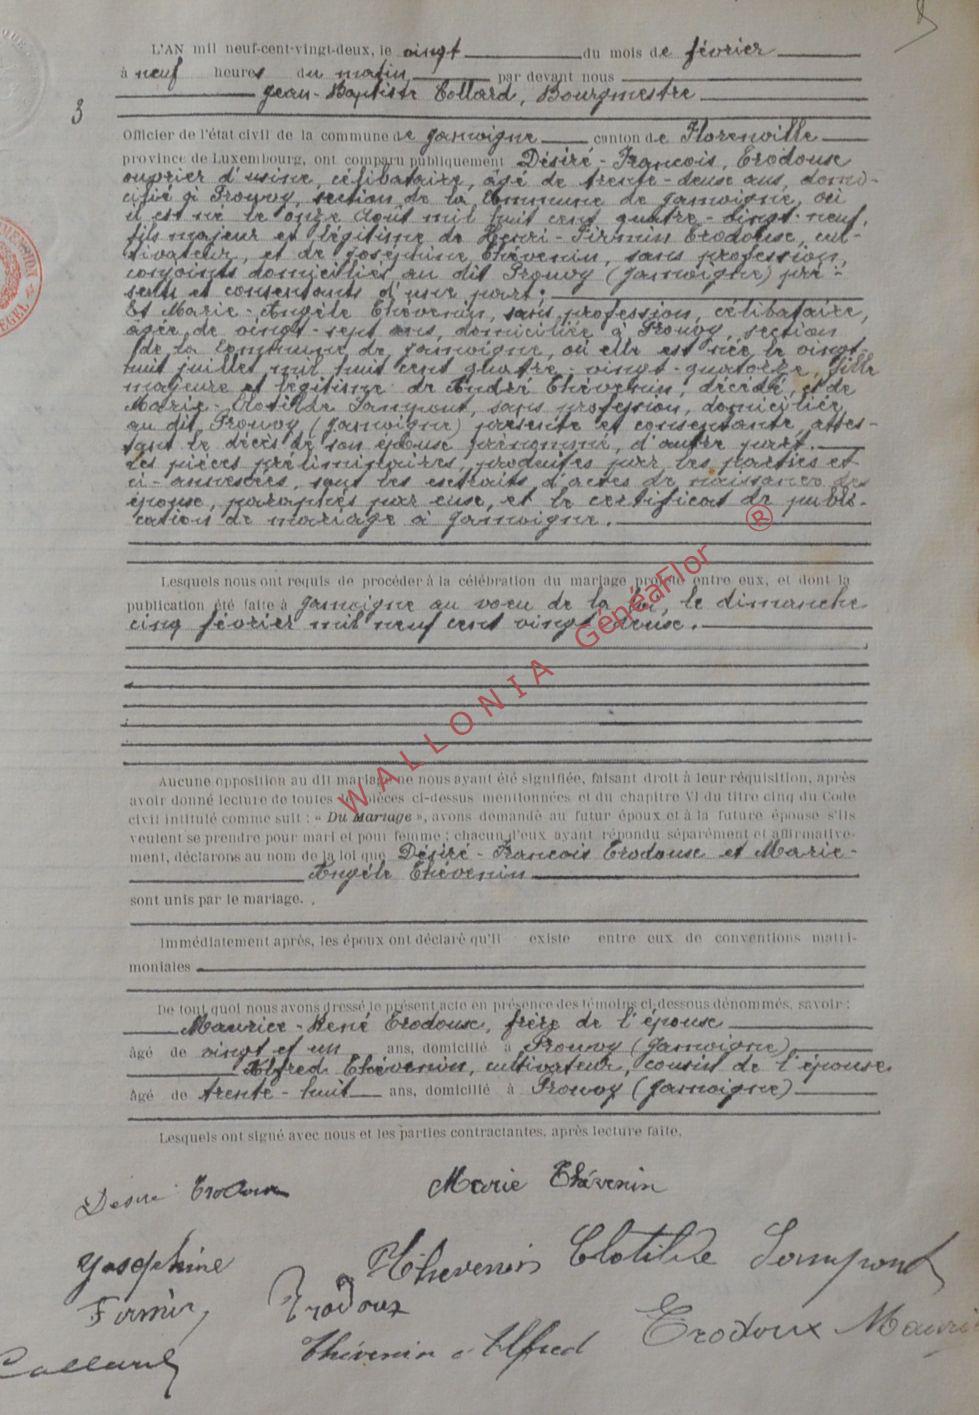 3
L'AN mil neuf-cent-vingt-deux, le vingt du mois de février
à neuf heures du matin par devant nous
Jean-Baptiste Collard, Bourgmestre
Officier de l'état civil de la commune de Jamoigne canton de Florenville
province de Luxembourg, ont comparu publiquement Désiré-François, Erodouse
ouvrier d'usine, célibataire, âgé de trente-deuse ans, domi-
cilié à Prouvy, section de la Commune de Jamoigne, où
il est né le onze août mil huit cent quatre-vingt-neuf,
fils majeur et légitime de Henri-Firmin Erodouse, cul-
tivateur, et de Joséphine Thévenin, sans profession,
conjoints domiciliés au dit Prouvy (Jamoigne) pré-
sents et consentants d'une part;
Et Marie-Angèle Thévenin, sans profession, célibataire,
âgée de vingt-sept ans, domiciliée à Prouvy, section
de la Commune de Jamoigne, où elle est née le vingt-
huit juillet mil huit cent quatre-vingt-quatorze, fille
majeure et légitime de André Thévenin, décédé, et de
Marie-Clotilde Lampont, sans profession, domiciliée
au dit Prouvy (Jamoigne) présente et consentante, attes-
tant le décès de son épouse prénommé, d'autre part.
Les pièces préliminaires, produites par les parties et
ci-annexées, sont les extraits d'actes de naissance des
épouse, paraphés par euse, et le certificat de publi-
cation de mariage à Jamoigne.
Lesquels nous ont requis de procéder à la célébration du mariage projeté entre eux, et dont la
publication été faite à Jamoigne au vœu de la loi, le dimanche
cinq février mil neuf cent vingt deuse.
Aucune opposition au dit mariage ne nous ayant été signifiée, faisant droit à leur réquisition, après
avoir donné lecture de toutes les pièces ci-dessus mentionnées et du chapitre VI du titre cinq du Code
civil intitulé comme suit : « Du Mariage », avons demandé au futur époux et à la future épouse s'ils
veulent se prendre pour mari et pour femme ; chacun d'eux ayant répondu séparément et affirmative-
ment, déclarons au nom de la loi que Désiré-François Erodouse et Marie-
Angèle Thévenin
sont unis par le mariage.
Immédiatement après, les époux ont déclaré qu'il existe entre eux de conventions matri-
moniales
De tout quoi nous avons dressé le présent acte en présence des témoins ci-dessous dénommés, savoir :
Maurice-René Erodouse, frère de l'épouse
âgé de vingt et un ans, domicilié à Prouvy (Jamoigne)
Alfred Thévenin, cultivateur, cousin de l'épouse
âgé de trente-huit ans, domicilié à Prouvy (Jamoigne)
Lesquels ont signé avec nous et les parties contractantes, après lecture faite.
Désiré Erodoux Marie Thévenin
Josephine Thevenin Clotilde Lampont
Firmin Erodoux Erodoux Mauri
Collard Thévenin Alfred
WALLONIA GenéaFlor ®